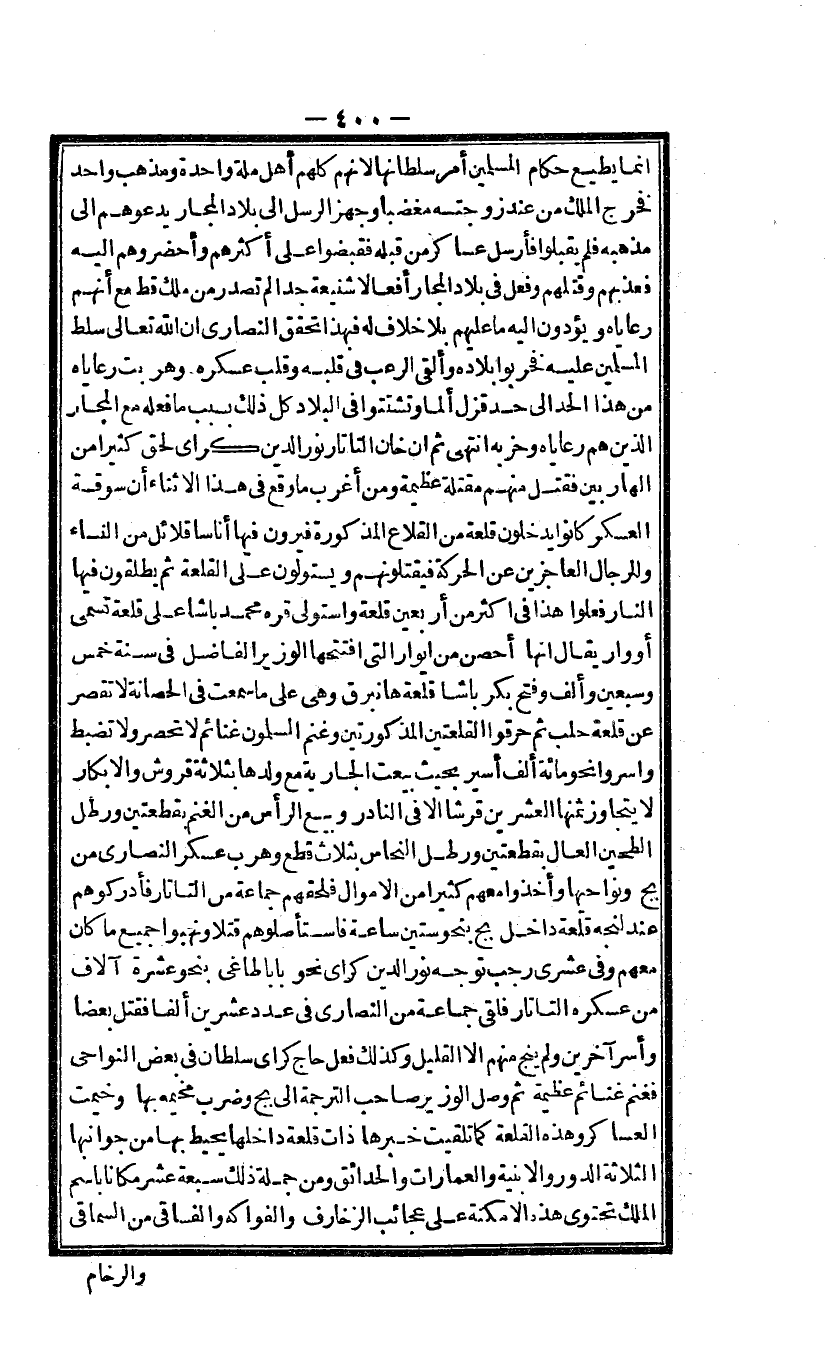 — ٤٠٠ —
انما يطيع حكام المسلمين أمر سلطانها لانهم كلهم أهل ملة واحدة ومذهب واحد
فخرج الملك من عند زوجتسه مغضبا وجهز الرسل الى بلاد المجار يدعوهم الى
مذهبه فلم يقبلوا فأرسل عساكر من قبله فقبضوا على أكثرهم وأحضروهم اليه
فعذبهم وقتلهم وفعل فى بلاد المجار أفعالا شنيعة جدا لم تصدر من ملك قط مع أنهم
رعاياه ويؤدون اليه ما عليهم بلا خلاف له فبهذا تحقق النصارى ان الله تعالى سلط
المسلمين عليه فخربوا بلاده وألقى الرعب فى قلبه وقلب عسكره. وهربت رعاياه
من هذا الحد الى حد قزل ألما وتشتتوا فى البلاد كل ذلك بسبب ما فعله مع المجار
الذين هم رعاياه وحزبه انتهى ثم ان خان التاتار نور الدين كراى لحق كثيرا من
الهاربين فقتل منهم مقتلة عظيمة ومن أغرب ما وقع فى هذا الاثناء أن سوقة
العسكر كانوا يدخلون قلعة من القلاع المذكورة فيرون فيها أناسا قلائل من النساء
والرجال العاجزين عن الحركة فيقتلونهم ويستولون على القلعة ثم يطلقون فيها
النار فعلوا هذا فى اكثر من أربعين قلعة واستولى قره محمد باشا على قلعة تسمى
أووار يقال انها أحصن من ايوار التى افتتحها الوزير الفاضل فى سنة خمس
وسبعين وألف وفتح بكر باشا قلعة هانبرق وهى على ما سمعت فى الحصانة لا تقصر
عن قلعة حلب ثم حرقوا القلعتين المذكورتين وغنم المسلمون غنائم لا تحصر ولا تضبط
واسروا نحو مائة ألف أسير بحيث بيعت الجارية مع ولدها بثلاثة قروش والابكار
لا يتجاوز ثمنها العشرين قرشا الا فى النادر وبيع الرأس من الغنم بقطعتين ورطل
الطحين العال بقطعتين ورطل النحاس بثلاث قطع وهرب عسكر النصارى من
بج ونواحيها وأخذوا معهم كثيرا من الاموال فلحقهم جماعة من التاتار فأدركوهم
عند لنجه قلعة داخل بج بنحو ستين ساعة فاستأصلوهم قتلا ونهبوا جميع ما كان
معهم وفى عشرى رجب توجه نور الدين كراى نحو بابا طاغى بنحو عشرة آلاف
من عسكره التاتار فلقى جماعة من النصارى فى عدد عشرين ألفا فقتل بعضا
وأسر آخرين ولم ينج منهم الا القليل وكذلك فعل حاج كراى سلطان فى بعض النواحى
فغنم غنائم عظيمة ثم وصل الوزير صاحب الترجمة الى بج وضرب مخيمه بها وخيمت
العساكر وهذه القلعة كما تلقيت خبرها ذات قلعة داخلها يحيط بها من جوانبها
الثلاثة الدور والابنية والعمارات والحدائق ومن جملة ذلك سبعة عشر مكانا باسم
الملك تحتوى هذه الامكنة على عجائب الزخارف والفواكه والفساقى من السماقى
والرخام